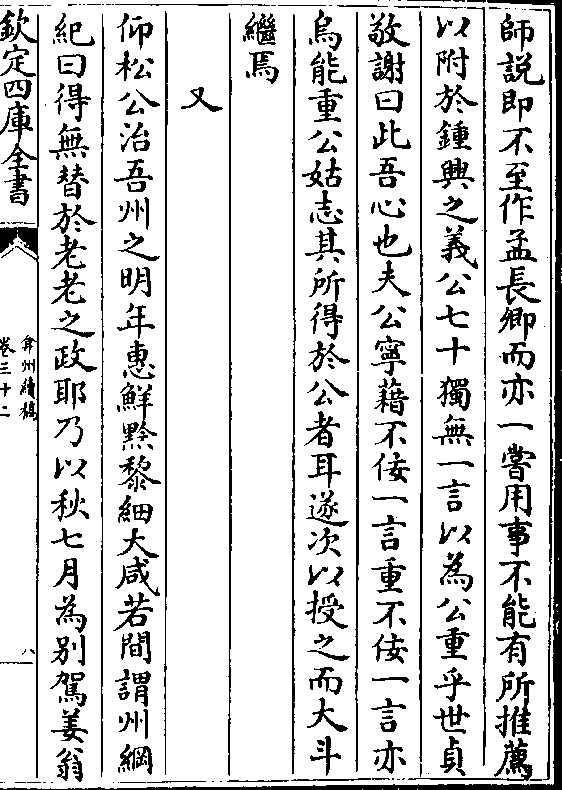 師說即不至作孟長卿而亦一嘗用事不能有所推薦
以附於鍾興之義公七十獨無一言以為公重乎世貞
敬謝曰此吾心也夫公寧藉不佞一言重不佞一言亦
烏能重公姑志其所得於公者耳遂次以授之而大斗
繼焉
又
仰松公治吾州之明年惠鮮黔黎細大咸若間謂州綱
紀曰得無替於老老之政耶乃以秋七月為別駕姜翁
欽定四庫全書
弇州續稿
卷三十二
八